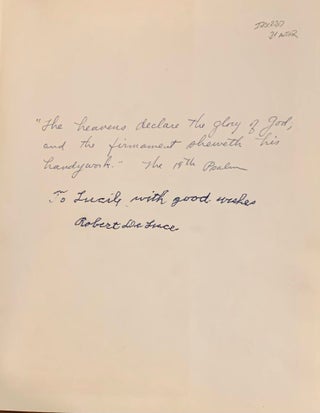 "The heavens declare the glory of God,
and the firmament sheweth his
handywork." The 19th Psalm
To Lucile with good wishes
Robert De Luce